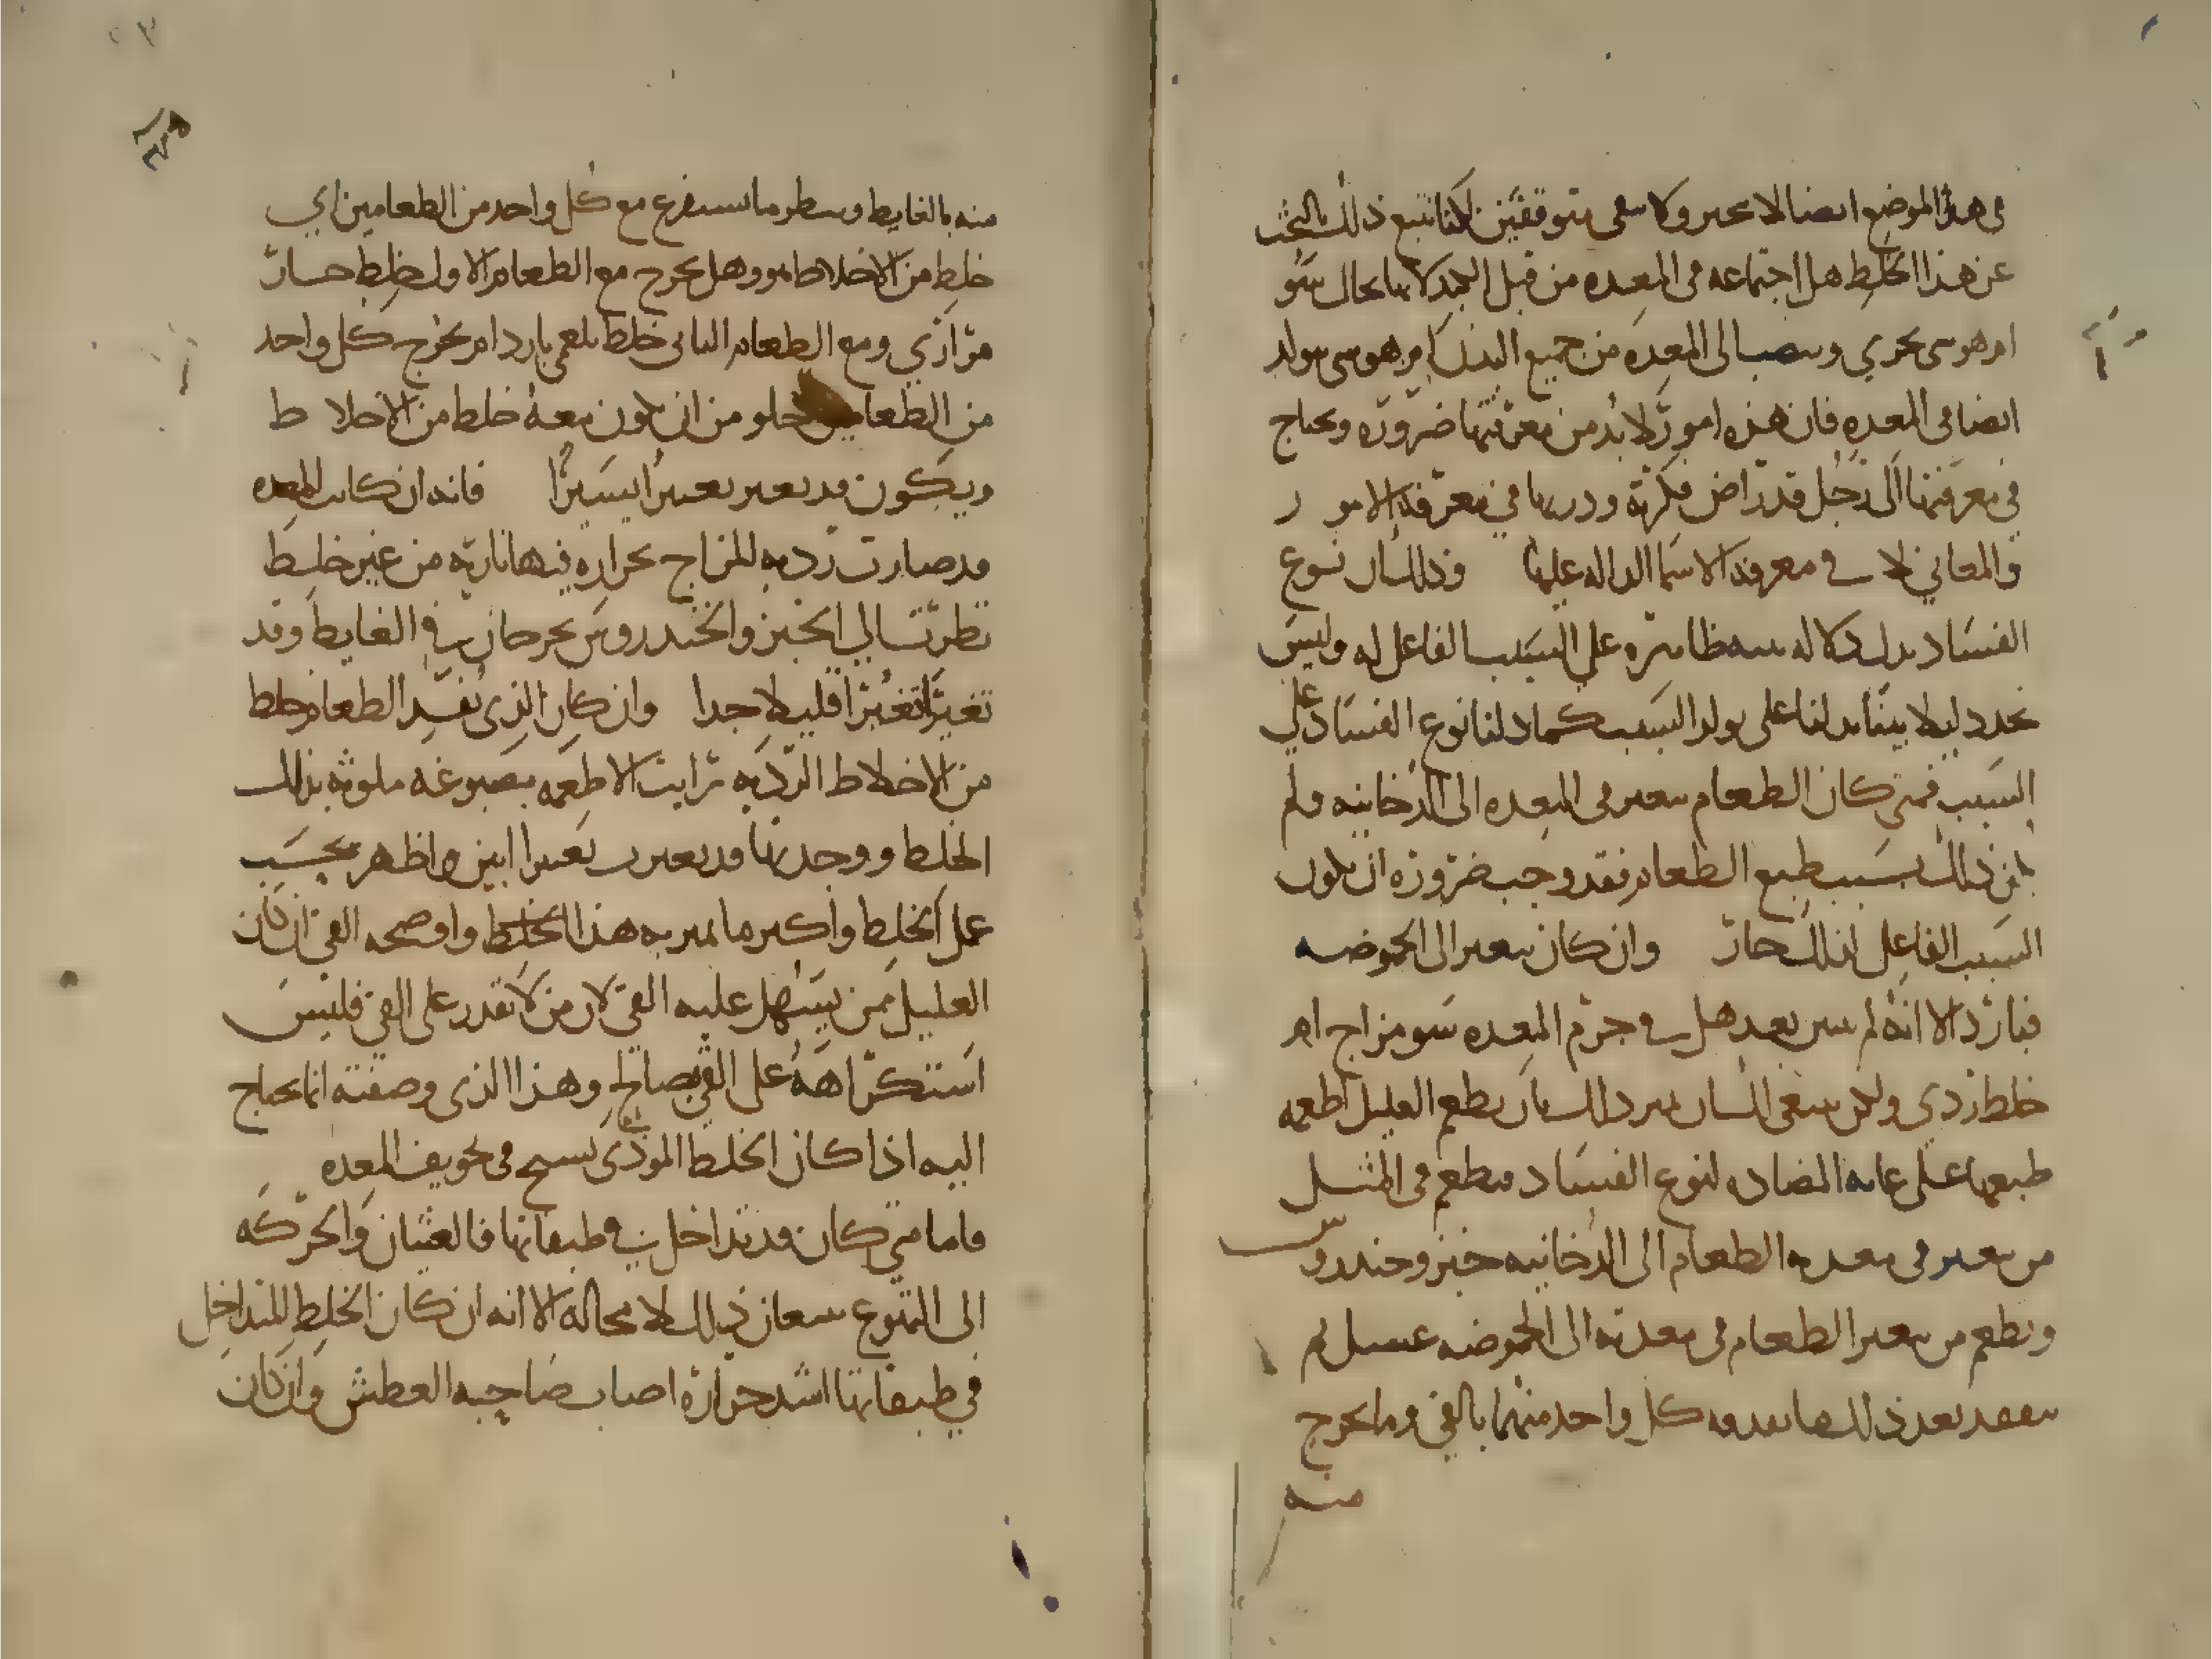 في هذا الموضع ايضا لا نتحير ولا نبقى متوقفين لكنا نتبع ذلك بالبحث
عن هذا الخلط هل اجتماعه في المعده من قبل انها بحال سو
ام هو شي يجري وينصب الى المعده من جميع البدن ام هو شي يتولد
ايضا في المعده فان هذه امور لا بد من معرفتها ضروره ويحتاج
في معرفتها الى رجل قد راض فكرته ودربها في معرفه الامور
والمعاني لا في معرفه الاسما الداله عليها وذلك ان نوع
الفساد يدل دلاله بينه ظاهره على السبب الفاعل له وليس
نجد دليلا بينا يدلنا على تولد السبب كما دلنا نوع الفساد على
السبب فمتى كان الطعام يتغير في المعده الى الدخانيه ولم
يكن ذلك بسبب طبع الطعام فقد وجب ضروره ان يكون
السبب الفاعل لذلك حار وان كان يتغير الى الحموضه
فبارد الا انه لم يبين بعد هل في جرم المعده سو مزاج ام
خلط ردي ولكن ينبغي لك ان تميز ذلك بان تطعم العليل اطعمه
طبعها على غايه المضاده لنوع الفساد فتطعم في المثل
من يتغير في معدته الطعام الى الدخانيه خبز وخندروس
وتطعم من يتغير الطعام في معدته الى الحموضه عسل ثم
تتفقد بعد ذلك ما يقذفه كل واحد منهما بالقي وما يخرج
منه
منه بالغايط وتنظر ما يستفرغ مع كل واحد من الطعامين اي
خلط من الاخلاط هو وهل يخرج مع الطعام الاول خلط حار
مراري ومع الطعام الثاني خلط بلغمي بارد ام يخرج كل واحد
من الطعامين خلو من ان يكون معه خلط من الاخلاط
ويكون قد تغير تغيرا يسيرا فانه ان كانت المعده
قد صارت رديه المزاج بحراره فيها ناريه من غير خلط
نظرت الى الخبز والخندروس يخرجان في الغايط وقد
تغيرا تغيرا قليلا جدا وان كان الذي يفسد الطعام خلط
من الاخلاط الرديه رايت الاطعمه مصبوغه ملوثه بذلك
الخلط ووجدتها قد تغيرت تغيرا ابين واظهر بحسب
عمل الخلط واكثر ما يميز به هذا الخلط واوضحه القي ان كان
العليل ممن يسهل عليه القي لان من لا يقدر على القي فليس
استكراهه على القي بصالح وهذا الذي وصفته انما يحتاج
اليه اذا كان الخلط الموذي يسبح في تجويف المعده
فاما متى كان قد تداخل في طبقاتها فالغثيان والحركه
الى التهوع يتبعان ذلك لا محاله الا انه ان كان الخلط المتداخل
في طبقاتها اشد حراره اصاب صاحبه العطش وان كان